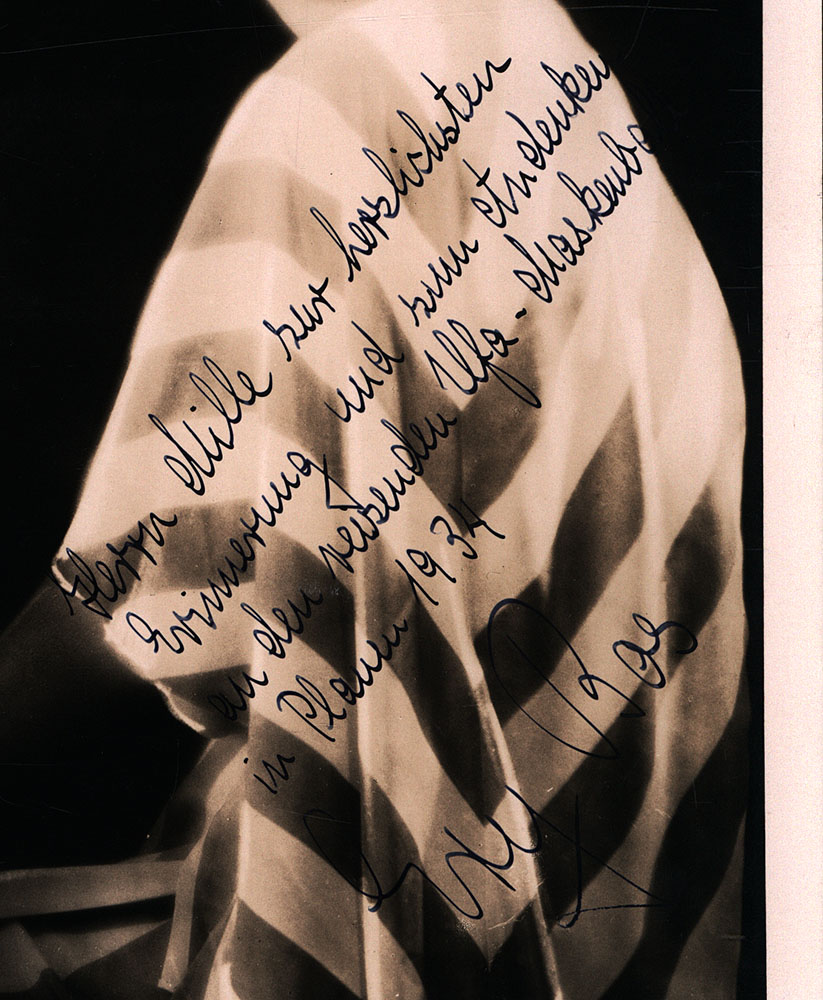 Herrn Mille zur herzlichsten
Erinnerung und zum Andenken
an den reizenden Ufa-Maskenball
in Plauen 1934
Ros